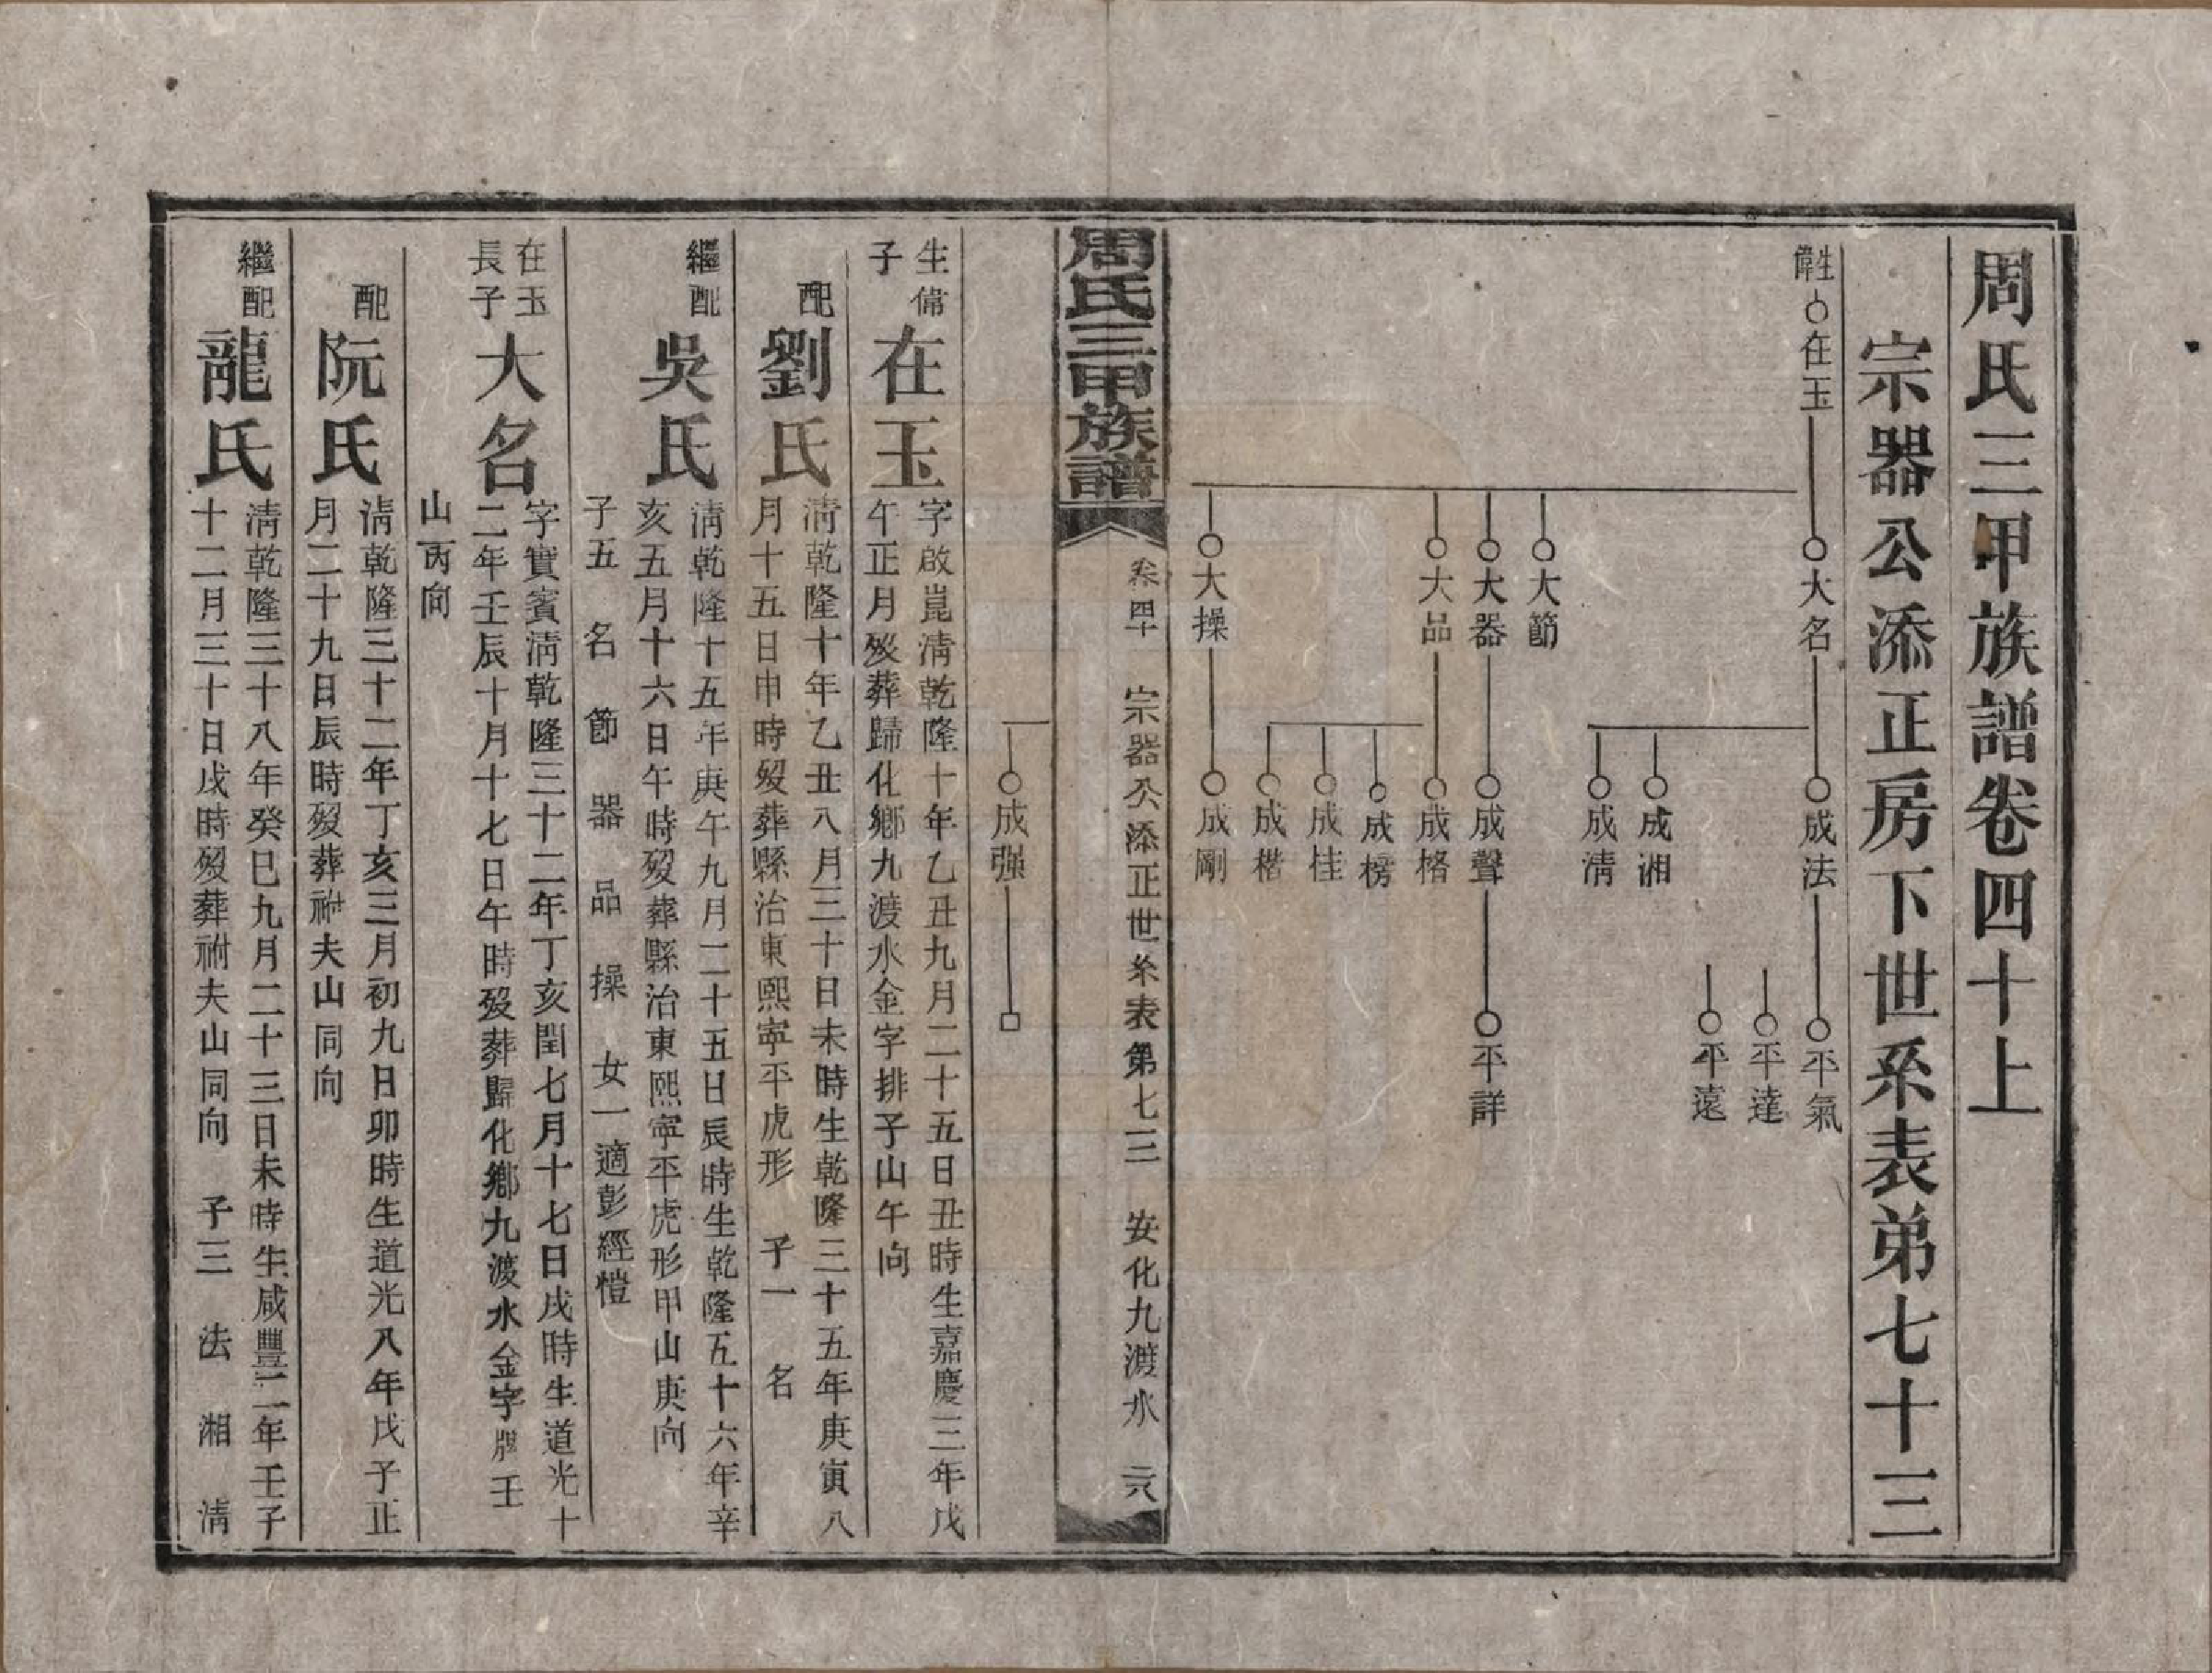 周氏三甲族譜卷四十上
宗器公添正房下世系表弟七十三
生偉
在玉
大名
成法
平氣
平達
平遠
成湘
成清
大節
大器
成聲
平詳
大品
成格
成榜
成桂
成楷
大操
成剛
周氏三甲族譜
卷四十 宗器公添正世系表第七三 安化九渡水 二六
成强
生偉子
在玉
字啟崑清乾隆十年乙丑九月二十五日丑時生嘉慶三年戊
午正月歿葬歸化鄉九渡水金字排子山午向
配
劉氏
清乾隆十年乙丑八月三十日未時生乾隆三十五年庚寅八
月十五日申時歿葬縣治東熙寧平虎形 子一 名
繼配
吳氏
清乾隆十五年庚午九月二十五日辰時生乾隆五十六年辛
亥五月十六日午時歿葬縣治東熙寧平虎形甲山庚向
子五 名 節 器 品 操 女一適彭經愷
在玉長子
大名
字實賓清乾隆三十二年丁亥閏七月十七日戌時生道光十
二年壬辰十月十七日午時歿葬歸化鄉九渡水金字牌壬
山丙向
配
阮氏
清乾隆三十二年丁亥三月初九日卯時生道光八年戊子正
月二十九日辰時歿葬祔夫山同向
繼配
龍氏
清乾隆三十八年癸巳九月二十三日未時生咸豐二年壬子
十二月三十日戌時歿葬祔夫山同向 子三 法 湘 清